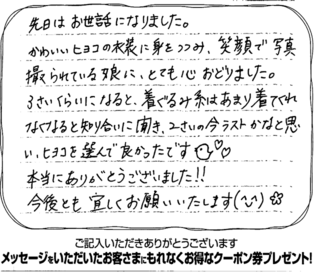 先日はお世話になりました。
かわいいヒヨコの衣装に身をつつみ、笑顔で写真
撮られている娘に、とても心おどりました。
3さいくらいになると、着ぐるみ系はあまり着てくれ
なくなると知り合いに聞き、2さいの今ラストかなと思
い、ヒヨコを選んで良かったです
本当にありがとうございました!!
今後とも宜しくお願いいたします(^^)
ご記入いただきありがとうございます
メッセージをいただいたお客さまにもれなくお得なクーポン券プレゼント!